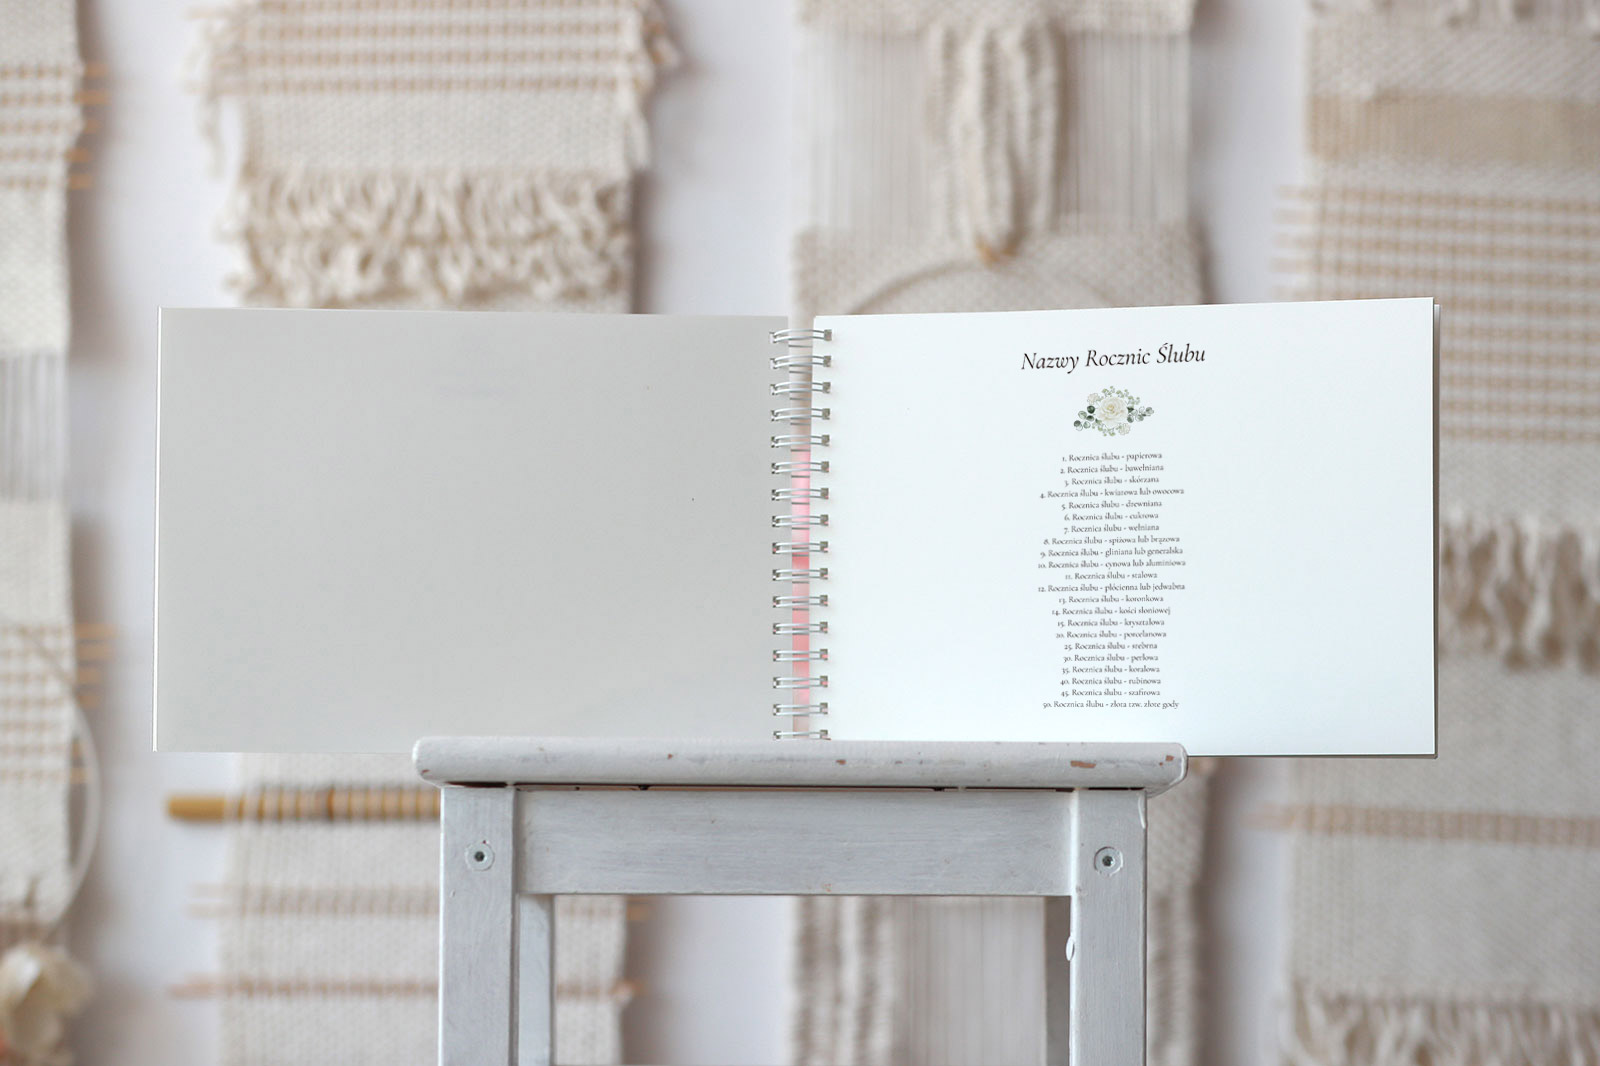 Nazwy Rocznic Ślubu
1. Rocznica ślubu - papierowa
2. Rocznica ślubu - bawełniana
3. Rocznica ślubu - skórzana
4. Rocznica ślubu - kwiatowa lub owocowa
5. Rocznica ślubu - drewniana
6. Rocznica ślubu - cukrowa
7. Rocznica ślubu - wełniana
8. Rocznica ślubu - spiżowa lub brązowa
9. Rocznica ślubu - gliniana lub generalska
10. Rocznica ślubu - cynowa lub aluminiowa
11. Rocznica ślubu - stalowa
12. Rocznica ślubu - płócienna lub jedwabna
13. Rocznica ślubu - koronkowa
14. Rocznica ślubu - kości słoniowej
15. Rocznica ślubu - kryształowa
20. Rocznica ślubu - porcelanowa
25. Rocznica ślubu - srebrna
30. Rocznica ślubu - perłowa
35. Rocznica ślubu - koralowa
40. Rocznica ślubu - rubinowa
45. Rocznica ślubu - szafirowa
50. Rocznica ślubu - złota tzw. złote gody